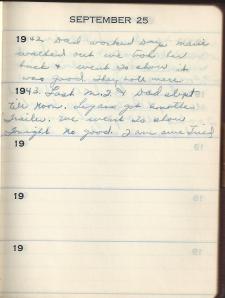 SEPTEMBER 25
1942 Dad worked Day. Marie
worked out we took her
back & went to show it
was good. They hole mere
1943. Last M.T & Dad slept
till noon. got another
Trailer. we went to show
tonight no good. I am sure Tired
19
19
19